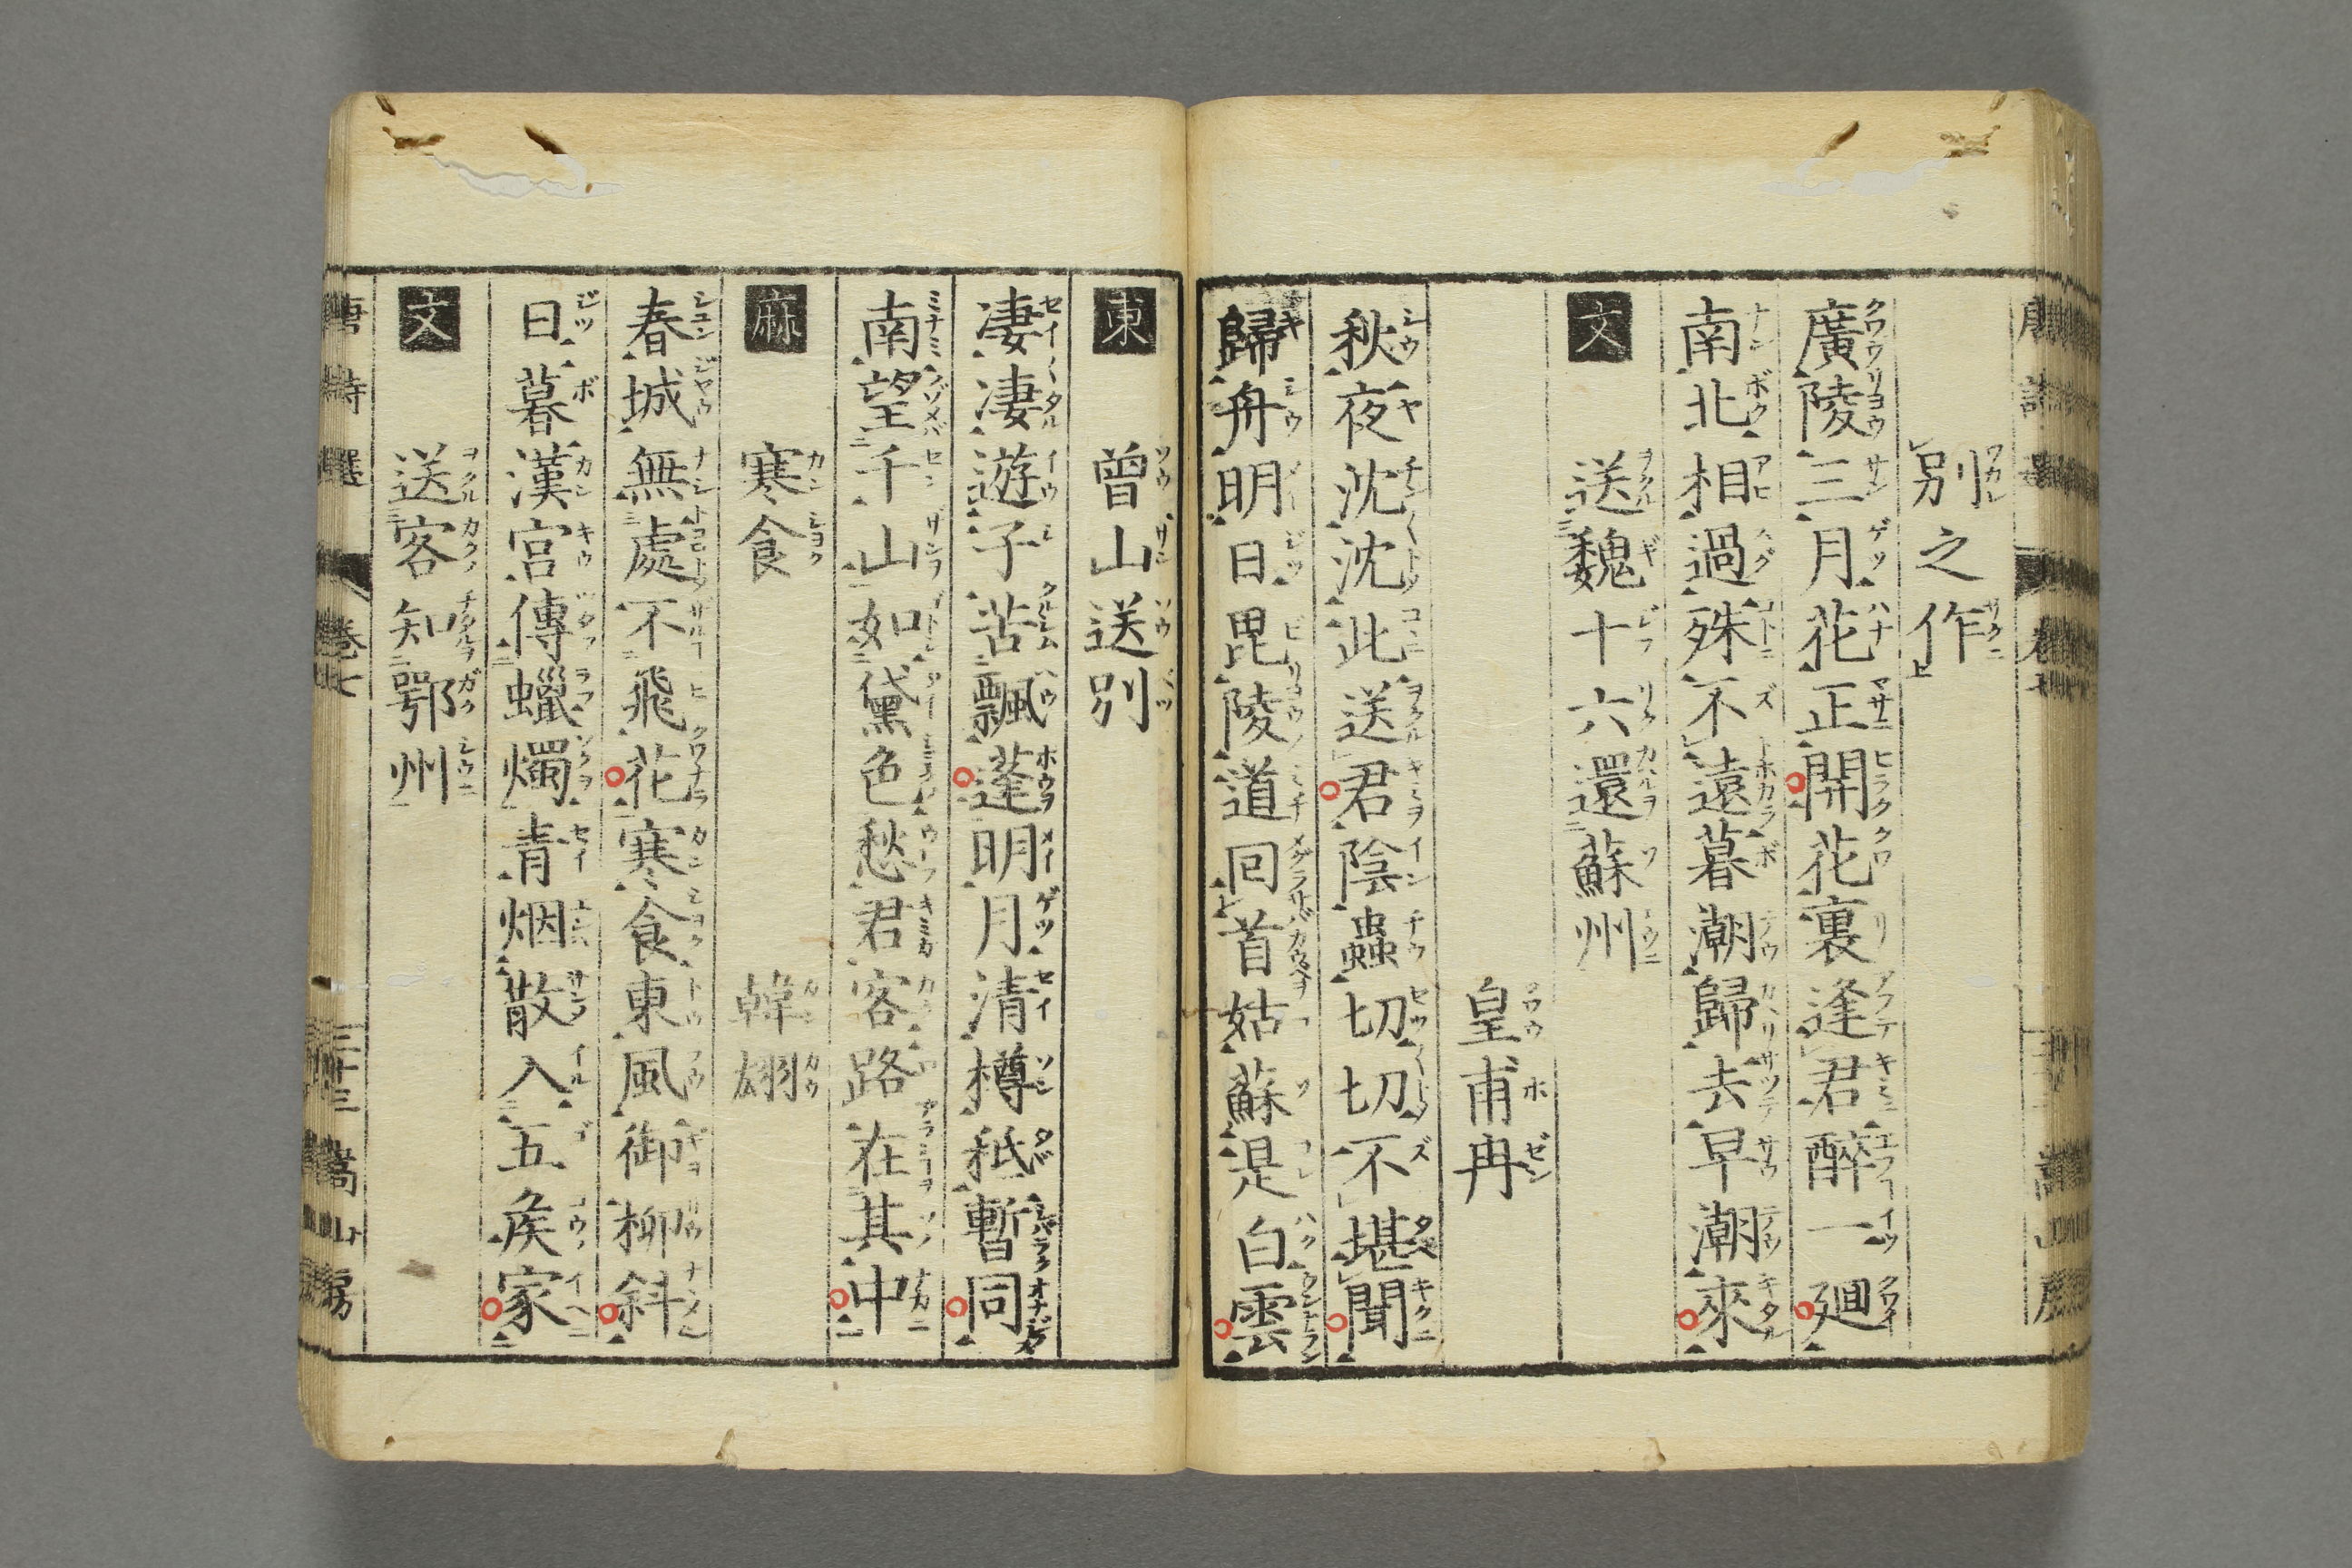 別之作
廣陵三月花正開花裏逢君醉一廻
南北相過殊不遠暮潮歸去早潮來
文 送魏十六還蘇州
皇甫冉
秋夜沈沈此送君陰蟲切切不堪聞
歸舟明日毘陵道回首姑蘇是白雲
東 曾山送別
凄凄遊子苦飄蓬明月清樽秖暫同
南望千山如黛色愁君客路在其中
麻 寒食 韓翃
春城無處不飛花寒食東風御柳斜
日暮漢宮傳蠟燭青烟散入五矦家
文 送客知鄂州
唐詩選 卷七 二十三 嵩山房